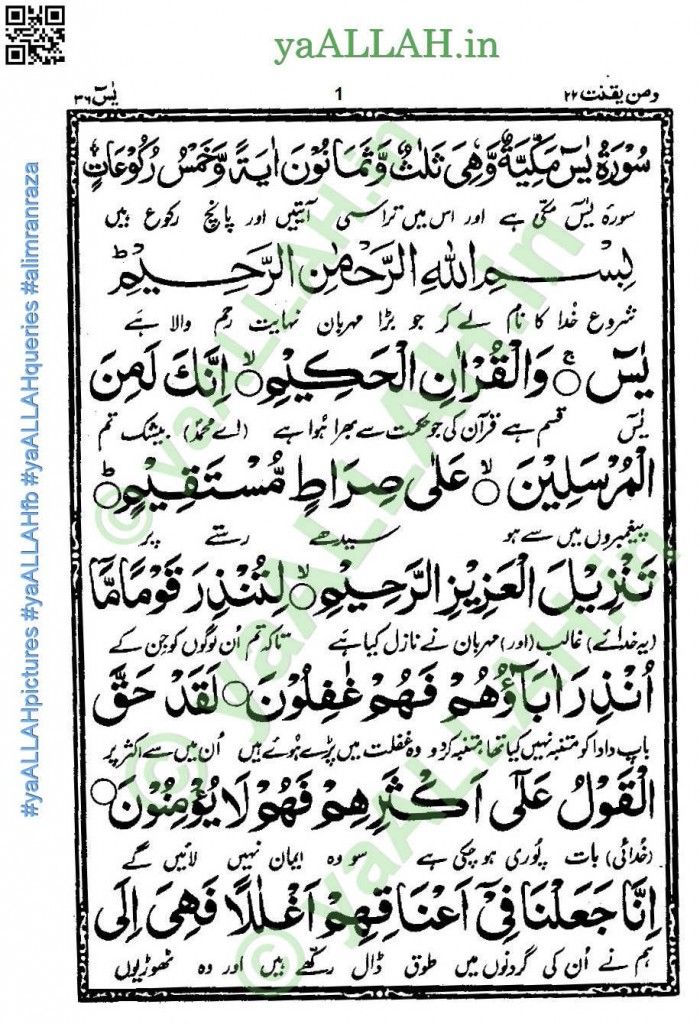 yaALLAH.in
ومن یقنت ۲۲
1
یٰسٓ ۳۶
سُوْرَةُ یٰسٓ مَكِّیَّةٌ وَّهِیَ ثَلٰثٌ وَّثَمَانُوْنَ اٰیَةً وَّخَمْسُ رُكُوْعَاتٍ
سورۂ یٰسٓ مکی ہے اور اس میں تراسی آیتیں اور پانچ رکوع ہیں
بِسْمِ اللّٰهِ الرَّحْمٰنِ الرَّحِیْمِ ؕ
شروع خدا کا نام لے کر جو بڑا مہربان نہایت رحم والا ہے
یٰسٓ ۚ○ وَالْقُرْاٰنِ الْحَكِیْمِ ۙ○ اِنَّكَ لَمِنَ
یٰسٓ قسم ہے قرآن کی جو حکمت سے بھرا ہوا ہے (اے محمدؐ) بیشک تم
الْمُرْسَلِیْنَ ۙ○ عَلٰی صِرَاطٍ مُّسْتَقِیْمٍ ؕ○
پیغمبروں میں سے ہو سیدھے رستے پر
تَنْزِیْلَ الْعَزِیْزِ الرَّحِیْمِ ۙ○ لِتُنْذِرَ قَوْمًا مَّاۤ
(یہ خدائے) غالب (اور) مہربان نے نازل کیا ہے تاکہ تم اُن لوگوں کو جن کے
اُنْذِرَ اٰبَآؤُهُمْ فَهُمْ غٰفِلُوْنَ ○ لَقَدْ حَقَّ
باپ دادا کو متنبہ نہیں کیا تھا متنبہ کردو وہ غفلت میں پڑے ہوئے ہیں اُن میں سے اکثر پر
الْقَوْلُ عَلٰۤی اَكْثَرِهِمْ فَهُمْ لَا یُؤْمِنُوْنَ ○
(خدائی) بات پوری ہوچکی ہے سو وہ ایمان نہیں لائیں گے
اِنَّا جَعَلْنَا فِیْۤ اَعْنَاقِهِمْ اَغْلٰلًا فَهِیَ اِلَی
ہم نے اُن کی گردنوں میں طوق ڈال رکھے ہیں اور وہ ٹھوڑیوں
#yaALLAHpictures #yaALLAHfb #yaALLAHqueries #alimranraza
© yaALLAH.in
© yaALLAH.in
© yaALLAH.in